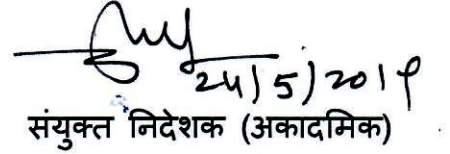 24/5/2019
संयुक्त निदेशक (अकादमिक)